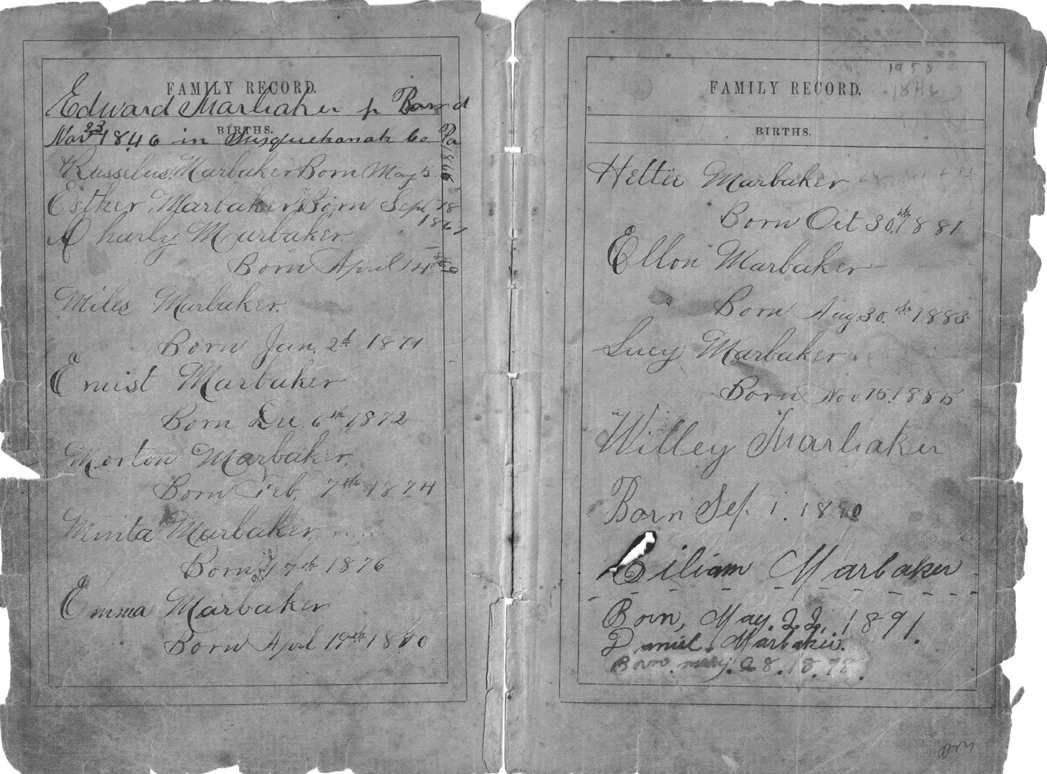 FAMILY RECORD.
Edward Marbaker Born
Nov 23 1846 in Susquehanah Co Pa
BIRTHS.
Russelus Marbaker Born May 5
Esther Marbaker Born Sept 18
1867
Charly Marbaker
Born April 14th
Miles Marbaker.
Born Jan. 2d 1871
Ernist Marbaker
Born Dec 6th 1872
Morton Marbaker.
Born Feb. 7th 1874
Minta Marbaker.
Born April 7th 1876
Emma Marbaker
Born April 19th 1880
FAMILY RECORD.
BIRTHS.
Hettie Marbaker
Born Oct 30th 1881
Ellon Marbaker
Born Aug 30th 1883
Lucy Marbaker
Born Nov 15 1885
Willey Marbaker
Born Sep. 1. 1890
Liliam Marbaker
Born, May. 22, 1891.
Daniel. Marbaker.
Born. may. 28. 18.78.